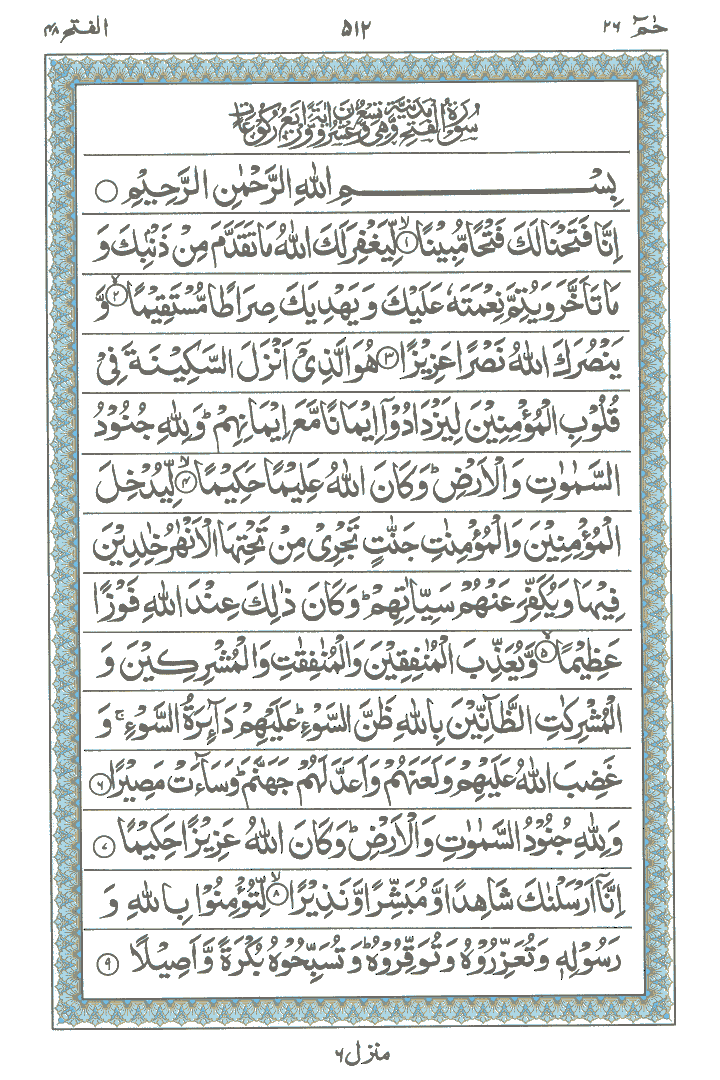 حٰمٓ ۲۶
۵۱۲
الفتح ۴۸
سُوْرَةُ الْفَتْحِ مَدَنِيَّةٌ وَّهِيَ تِسْعٌ وَّعِشْرُوْنَ اٰيَةً وَّاَرْبَعُ رُكُوْعَاتٍ
بِسْــــــــــــمِ اللهِ الرَّحْمٰنِ الرَّحِيْمِ ○
اِنَّا فَتَحْنَا لَكَ فَتْحًا مُّبِيْنًا ۙ﴿۱﴾ لِّيَغْفِرَ لَكَ اللهُ مَا تَقَدَّمَ مِنْ ذَنْۢبِكَ وَ
مَا تَاَخَّرَ وَيُتِمَّ نِعْمَتَهٗ عَلَيْكَ وَيَهْدِيَكَ صِرَاطًا مُّسْتَقِيْمًا ۙ﴿۲﴾ وَّ
يَنْصُرَكَ اللهُ نَصْرًا عَزِيْزًا ﴿۳﴾ هُوَ الَّذِيْٓ اَنْزَلَ السَّكِيْنَةَ فِيْ
قُلُوْبِ الْمُؤْمِنِيْنَ لِيَزْدَادُوْٓا اِيْمَانًا مَّعَ اِيْمَانِهِمْ ؕ وَلِلّٰهِ جُنُوْدُ
السَّمٰوٰتِ وَالْاَرْضِ ؕ وَكَانَ اللهُ عَلِيْمًا حَكِيْمًا ۙ﴿۴﴾ لِّيُدْخِلَ
الْمُؤْمِنِيْنَ وَالْمُؤْمِنٰتِ جَنّٰتٍ تَجْرِيْ مِنْ تَحْتِهَا الْاَنْهٰرُ خٰلِدِيْنَ
فِيْهَا وَيُكَفِّرَ عَنْهُمْ سَيِّاٰتِهِمْ ؕ وَكَانَ ذٰلِكَ عِنْدَ اللهِ فَوْزًا
عَظِيْمًا ۙ﴿۵﴾ وَّيُعَذِّبَ الْمُنٰفِقِيْنَ وَالْمُنٰفِقٰتِ وَالْمُشْرِكِيْنَ وَ
الْمُشْرِكٰتِ الظَّآنِّيْنَ بِاللهِ ظَنَّ السَّوْءِ ؕ عَلَيْهِمْ دَآئِرَةُ السَّوْءِ ۚ وَ
غَضِبَ اللهُ عَلَيْهِمْ وَلَعَنَهُمْ وَاَعَدَّ لَهُمْ جَهَنَّمَ ؕ وَسَآءَتْ مَصِيْرًا ﴿۶﴾
وَلِلّٰهِ جُنُوْدُ السَّمٰوٰتِ وَالْاَرْضِ ؕ وَكَانَ اللهُ عَزِيْزًا حَكِيْمًا ﴿۷﴾
اِنَّآ اَرْسَلْنٰكَ شَاهِدًا وَّمُبَشِّرًا وَّنَذِيْرًا ۙ﴿۸﴾ لِّتُؤْمِنُوْا بِاللهِ وَ
رَسُوْلِهٖ وَتُعَزِّرُوْهُ وَتُوَقِّرُوْهُ ؕ وَتُسَبِّحُوْهُ بُكْرَةً وَّاَصِيْلًا ﴿۹﴾
منزل ۶